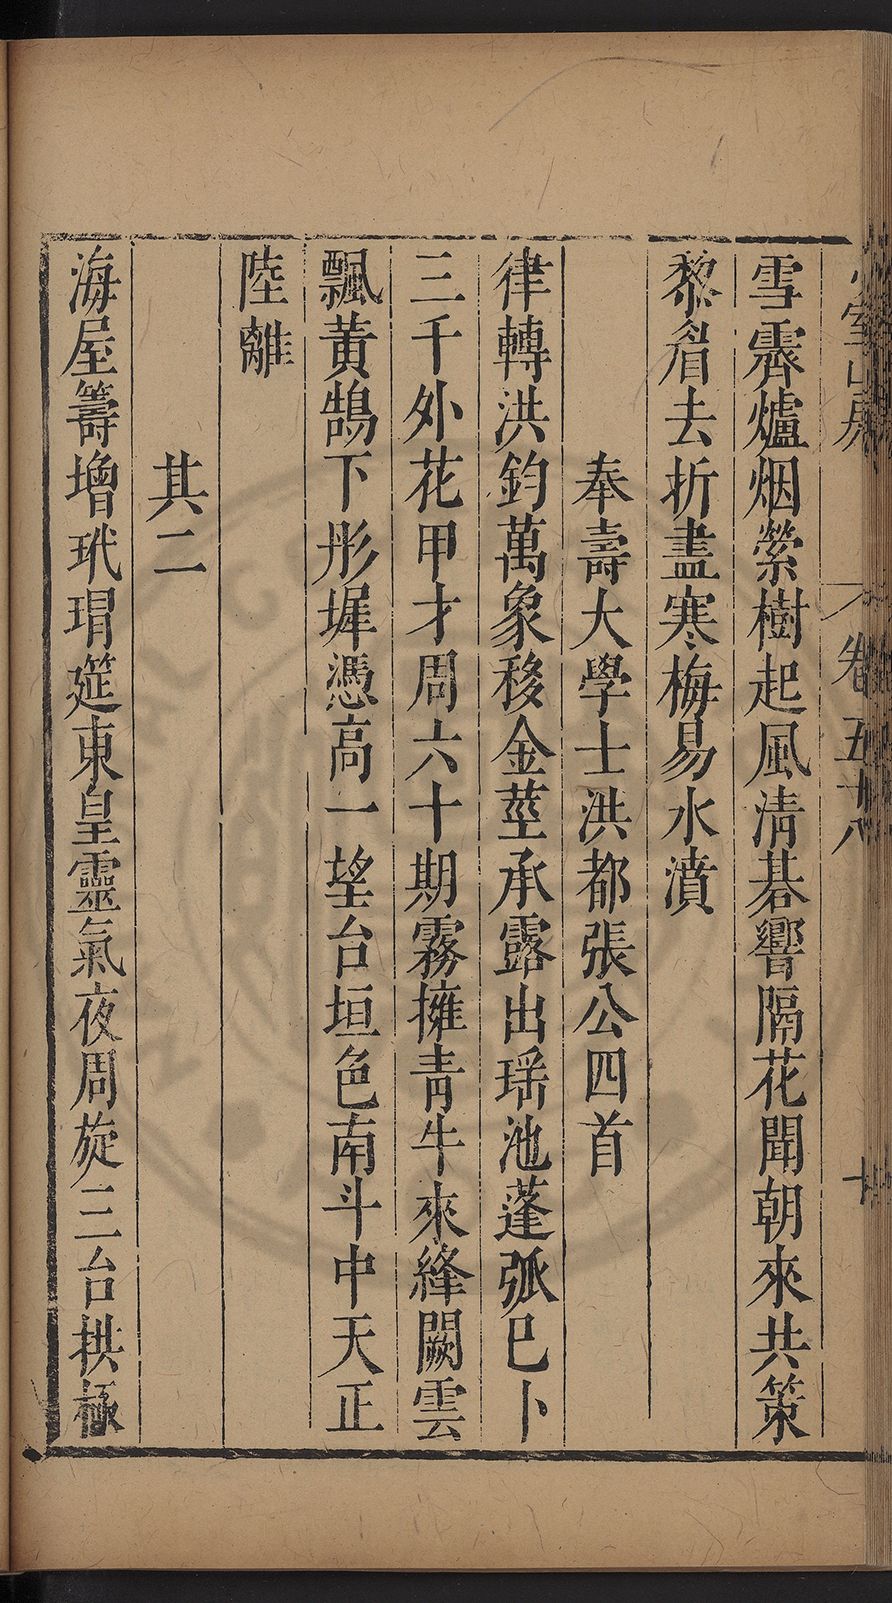 少室山房 卷五十八 十
雪霽爐烟縈樹起風清碁響隔花聞朝來共策
黎眉去折盡寒梅易水濆
奉壽大學士洪都張公四首
律轉洪鈞萬象移金莖承露出瑶池蓬弧巳卜
三千外花甲才周六十期霧擁青牛來絳闕雲
飄黄鵠下彤墀憑高一望台垣色南斗中天正
陸離
其二
海屋籌增玳瑁筵東皇靈氣夜周旋三台拱極